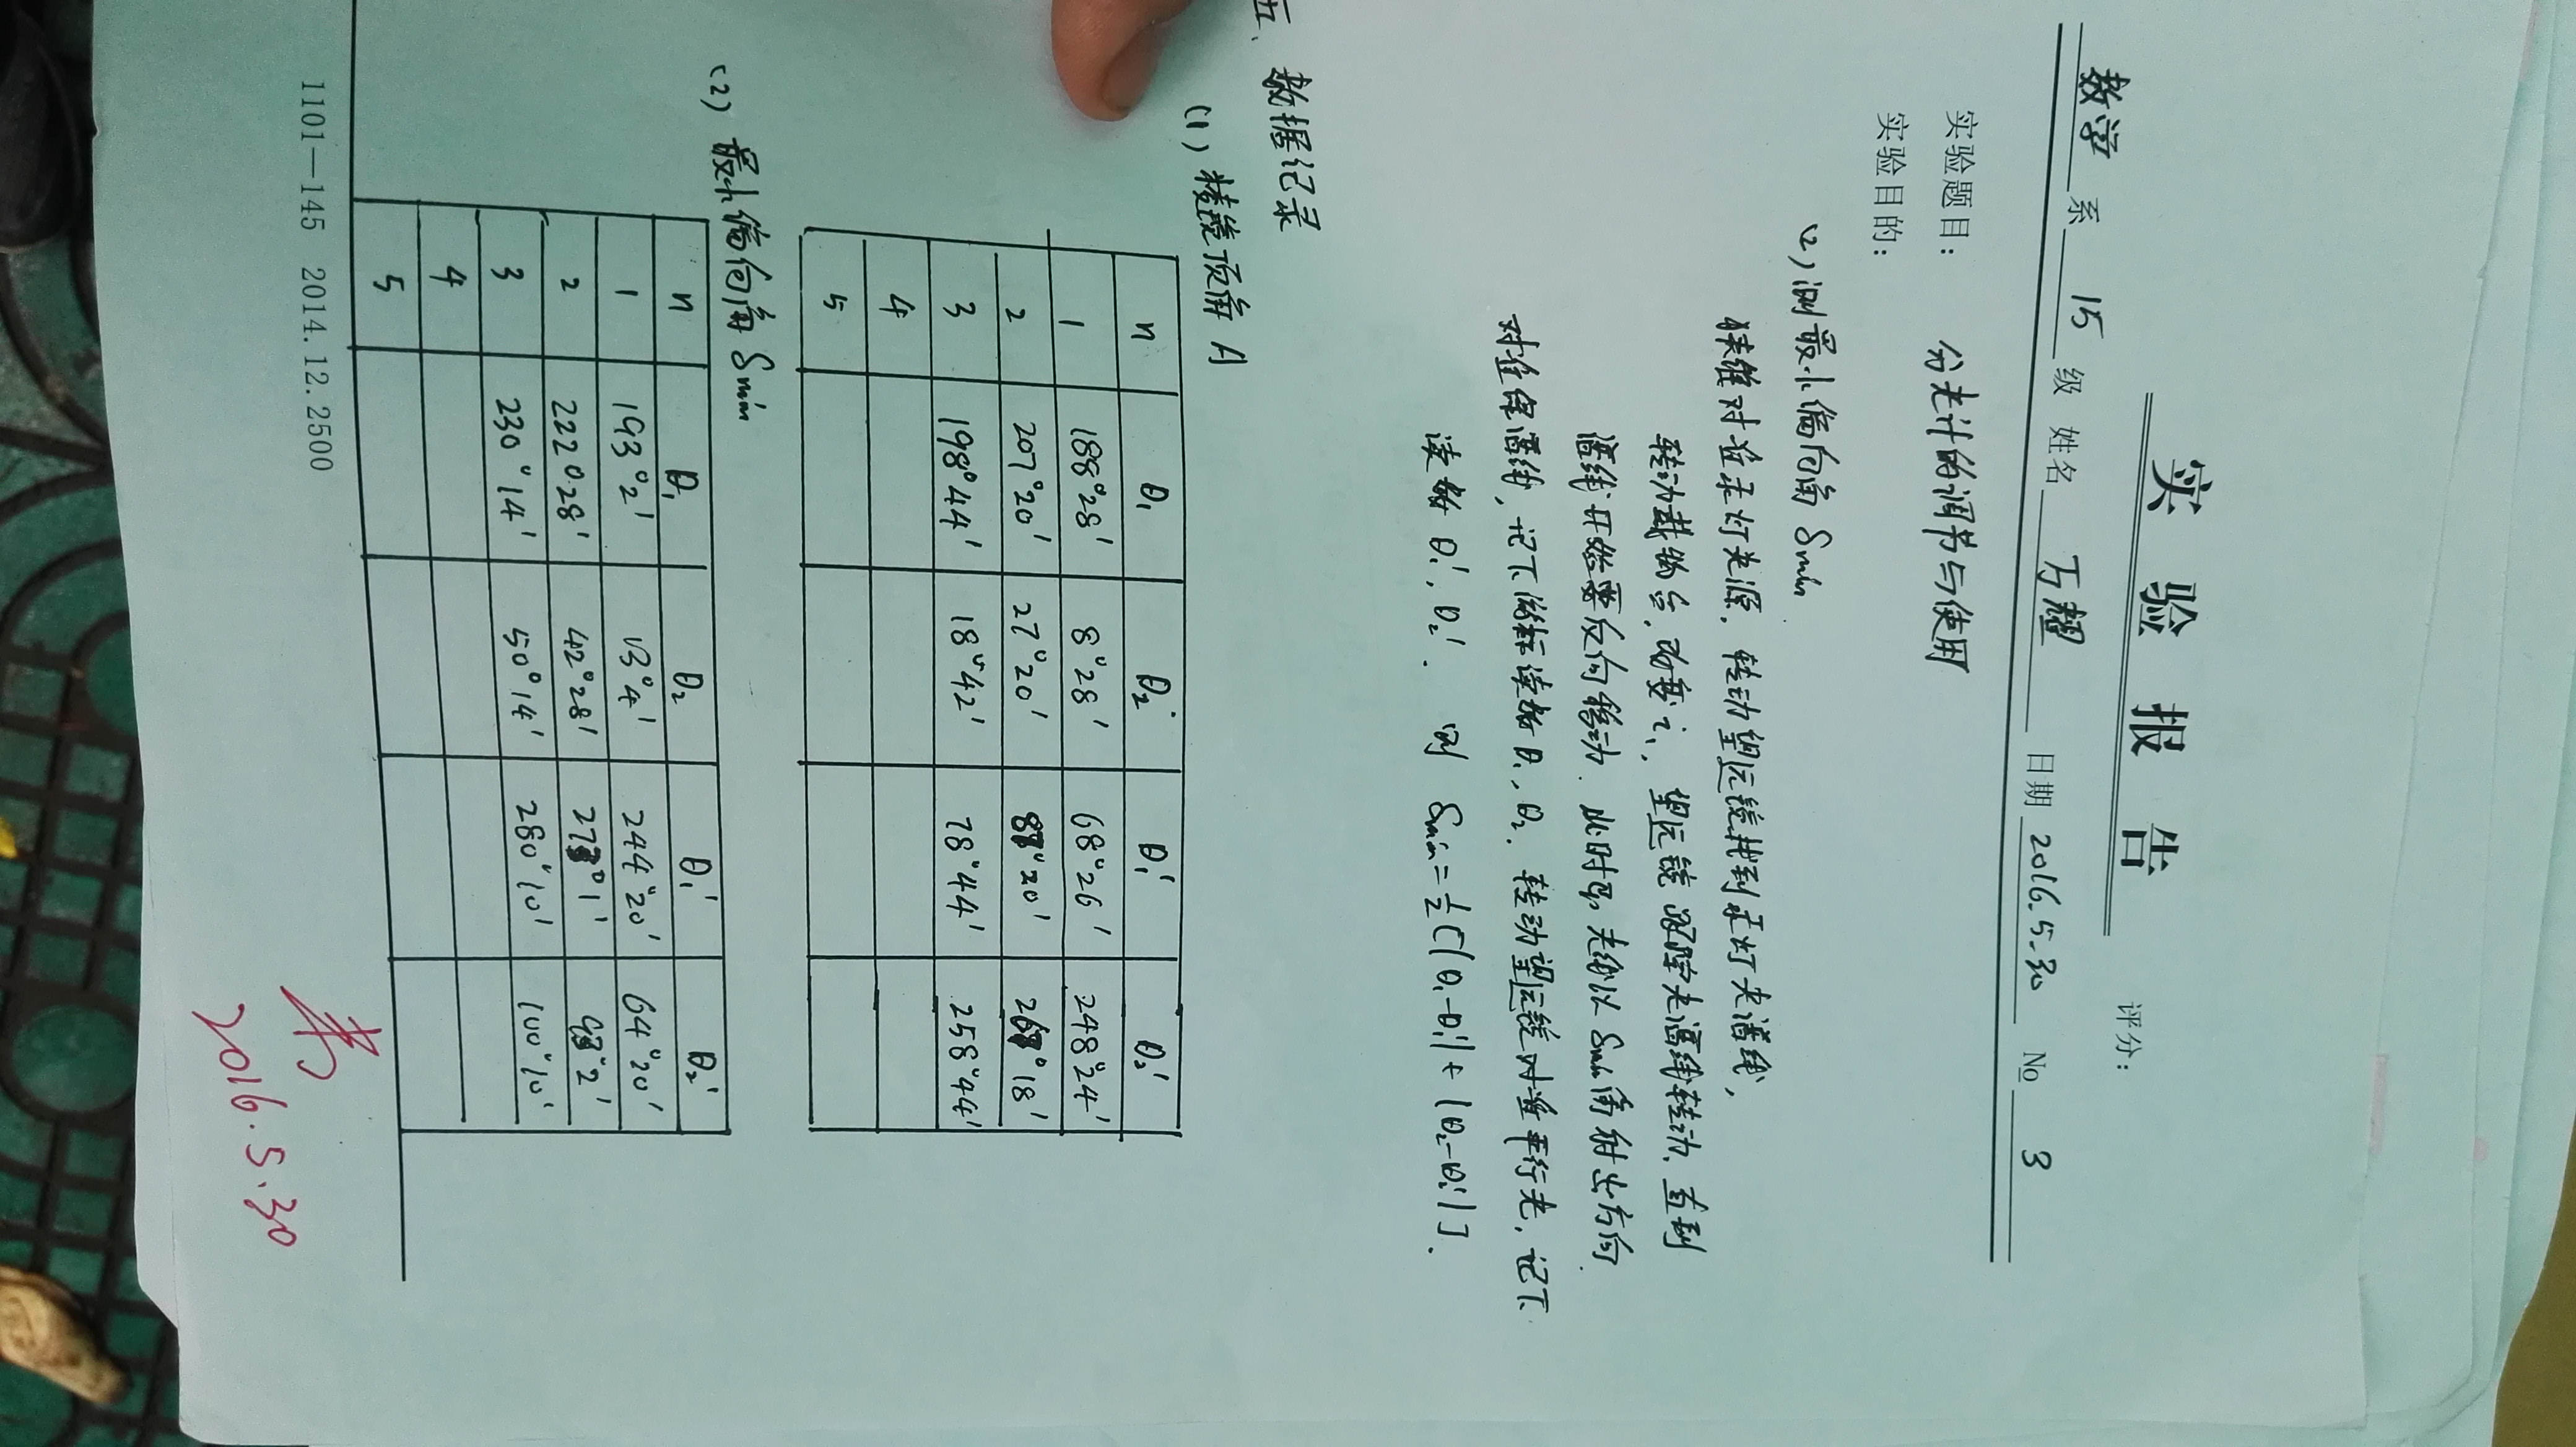 实验报告
评分:
数学 系 15 级 姓名 丁耀 日期 2016.5.30 No 3
实验题目: 分光计的调节与使用
实验目的:
(2) 测最小偏向角 δmin
棱镜对准汞灯光源, 转动望远镜找到汞灯光谱线,
转动载物台, 改变 i₁, 望远镜跟踪光谱线转动, 直到
谱线开始要反向移动. 此时的光线以 δmin 角射出方向
对准绿谱线, 记下游标读数 θ₁, θ₂. 转动望远镜对准平行光, 记下
读数 θ₁', θ₂'. 则 δmin = ½[|θ₁-θ₁'| + |θ₂-θ₂'|].
五、数据记录
(1) 棱镜顶角 A
n θ₁ θ₂ θ₁' θ₂'
1 188°28' 8°28' 68°26' 248°24'
2 207°20' 27°20' 87°20' 267°18'
3 198°44' 18°42' 78°44' 258°44'
4
5
(2) 最小偏向角 δmin
n θ₁ θ₂ θ₁' θ₂'
1 193°2' 13°4' 244°20' 64°20'
2 222°28' 42°28' 273°1' 93°2'
3 230°14' 50°14' 280°10' 100°10'
4
5
1101—145 2014.12.2500
2016.5.30